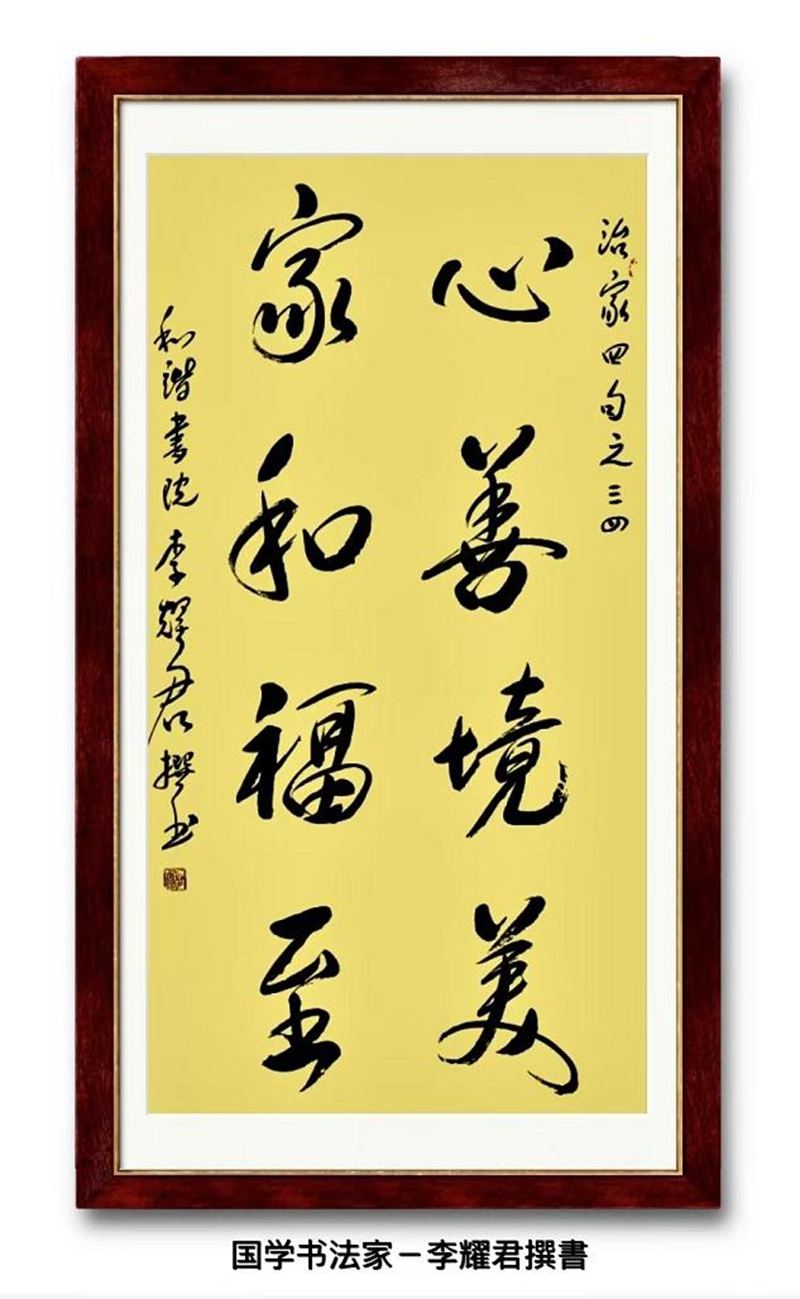 治家四句之三四
心善境美
家和福至
和谐书院李耀君撰书
国学书法家－李耀君撰書